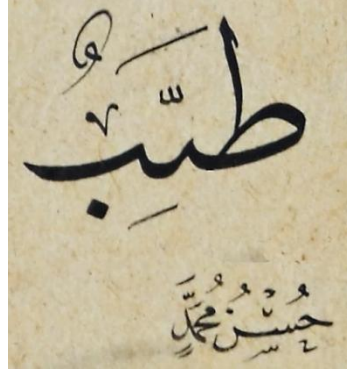 طَيِّبٌ
حُسْنُ مُحَمَّدٍ